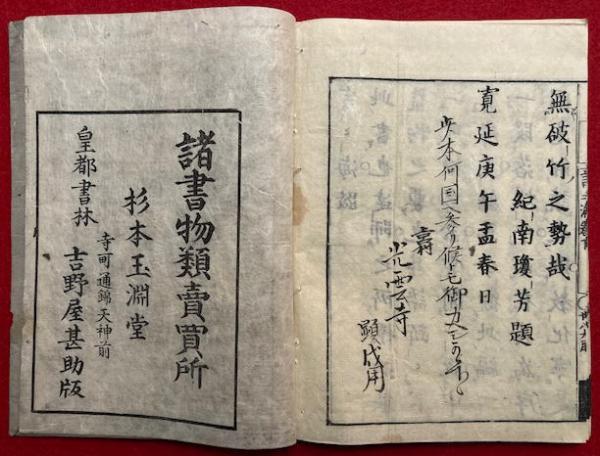 無破竹之勢哉
紀南瓊芳題
寛延庚午孟春日
此本何国へ参り候とも御かへし可被下
光雲寺
顕成用
諸書物類賣買所
杉本玉淵堂
寺町通錦天神前
皇都書林 吉野屋甚助版